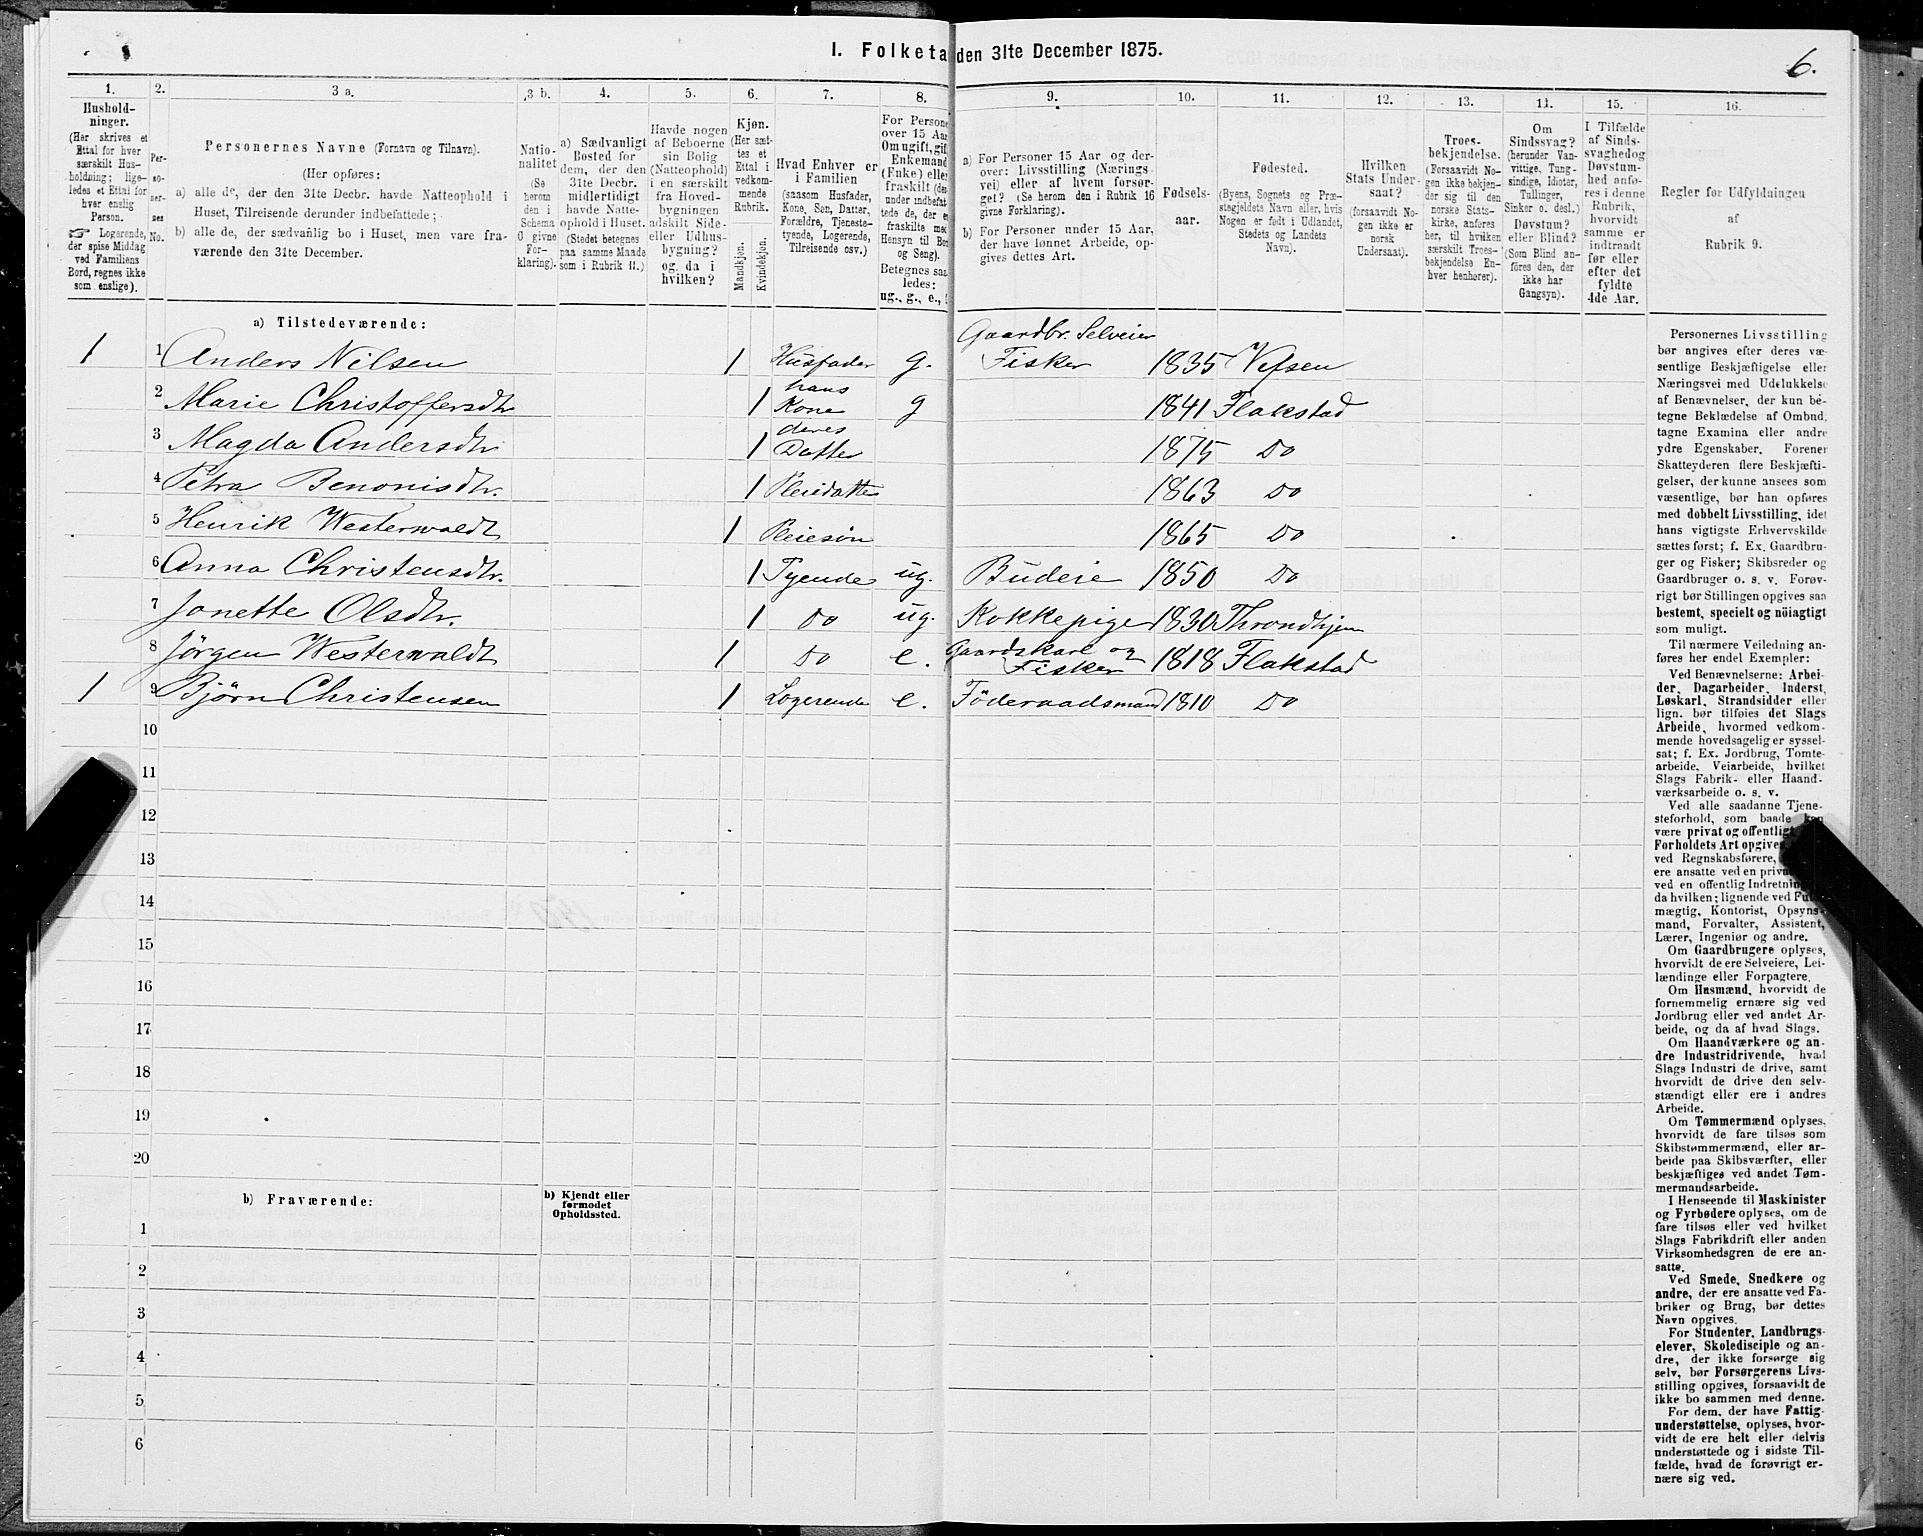 I. Folketa den 31te December 1875.
6.
1. 2. 3 a. 3 b. 4. 5. 6. 7. 8. 9. 10. 11. 12. 13. 14. 15. 16.
Hushold-
ninger.
(Her skrives et
Ettal for hver
særskilt Hus-
holdning; lige-
ledes et Ettal for
hver enslig
Person.
☞ Logerende,
der spise Middag
ved Familiens
Bord, regnes ikke
som enslige).
Per-
so-
ner-
nes
No.
Personernes Navne (Fornavn og Tilnavn).
(Her opføres:
a) alle de, der den 31te Decbr. havde Natteophold i
Huset, Tilreisende derunder indbefattede;
b) alle de, der sædvanlig bo i Huset, men vare fra-
værende den 31te December.
Natio-
nalitet
(Se
herom
den i
Schema
0 givne
For-
klaring).
a) Sædvanligt
Bosted for
dem, der den
31te Decbr.
midlertidigt
havde Natte-
ophold i Huset.
(Stedet betegnes
paa samme Maade
som i Rubrik 11.)
Havde nogen
af Beboerne
sin Bolig
(Natteophold)
i en særskilt
fra Hoved-
bygningen
adskilt Side-
eller Udhus-
bygning?
og da i
hvilken?
Kjøn.
(Her sæt-
tes et
Ettal i
vedkom-
mende
Rubrik.
Mandkjøn.
Kvindekjøn.
Hvad Enhver er
i Familien
(saasom Husfader,
Kone, Søn, Datter,
Forældre, Tjeneste-
tyende, Logerende,
Tilreisende osv.)
For Persone
over 15 Aar
Om ugift, gift
Enkemand
(Enke) elle
fraskilt (de
under indbefat
tede de, der e
fraskilte med
Hensyn til Bor
og Seng).
Betegnes saa
ledes:
ug., g., e.,
a) For Personer 15 Aar og der-
over: Livsstilling (Nærings-
vei) eller af hvem forsør-
get? (Se herom den i Rubrik 16
givne Forklaring).
b) For Personer under 15 Aar,
der have lønnet Arbeide, op-
gives dettes Art.
Fødsels-
aar.
Fødested.
(Byens, Sognets og Præ-
stegjeldets Navn eller, hvis
Nogen er født i Udlandet,
Stedets og Landets
Navn).
Hvilken
Stats Under-
saat?
(forsaavidt No-
gen ikke er
norsk
Undersaat).
Troes-
bekjendelse.
(Forsaavidt No-
gen ikke bekjen-
der sig til den
norske Stats-
kirke, anføres
her, til hvilken
særskilt Troes-
bekjendelse En-
hver henhører).
Om
Sindssvag?
(herunder Van-
vittige, Tung-
sindige, Idioter,
Tullinger,
Sinker o. desl.)
Døvstum?
eller Blind?
(Som Blind an-
føres den, der
ikke har
Gangsyn).
I Tilfælde
af Sinds-
svaghed og
Døvstum-
hed anfø-
res i denne
Rubrik,
hvorvidt
samme er
indtraadt
før eller
efter det
fyldte
4de Aar.
Regler for Udfyldningen
af
Rubrik 9.
a) Tilstedeværende:
1 1 Anders Nilsen 1 Husfader g. Gaardbr. Selveier
Fisker 1835 Vefsen
2 Marie Christoffersdtr 1 hans
Kone g 1841 Flakstad
3 Magda Andersdtr 1 deres
Datter 1875 Do
4 Petra Benonisdtr. 1 Pleiedatter 1863 Do
5 Henrik Westerwaldt 1 Pleiesøn 1865 Do
6 Anna Christensdtr. 1 Tyende ug. Budeie 1850 Do
7 Jonette Olsdtr. 1 Do ug. Kokkepige 1830 Throndhjem
8 Jörgen Westerwaldt 1 Do e. Gaardskarl og
Fisker 1818 Flakstad
1 9 Bjørn Christensen 1 Logerende e. Föderaadsmand 1810 Do
10
11
12
13
14
15
16
17
18
19
20
b) Fraværende:
b) Kjendt eller
formodet
Opholdssted.
1
2
3
4
5
6
Personernes Livsstilling
bør angives efter deres væ-
sentlige Beskjæftigelse eller
Næringsvei med Udelukkelse
af Benævnelser, der kun be-
tegne Beklædelse af Ombud,
tagne Examina eller andre
ydre Egenskaber. Forener
Skatteyderen flere Beskjæfti-
gelser, der kunne ansees som
væsentlige, bør han opføres
med dobbelt Livsstilling, idet
hans vigtigste Erhvervskilde
sættes først; f. Ex. Gaardbru-
ger og Fisker; Skibsreder og
Gaardbruger o. s. v. Forøv-
rigt bør Stillingen opgives saa
bestemt, specielt og nöiagtigt
som muligt.
Til nærmere Veiledning an-
føres her endel Exempler:
Ved Benævnelserne: Arbei-
der, Dagarbeider, Inderst,
Løskarl, Strandsidder eller
lign. bør tilføies det Slags
Arbeide, hvormed vedkom-
mende hovedsagelig er syssel-
sat; f. Ex. Jordbrug, Tomte-
arbeide, Veiarbeide, hvilket
Slags Fabrik- eller Haand-
værksarbeide o. s. v.
Ved alle saadanne Tjene-
steforhold, som baade kan
være privat og offentligt
Forholdets Art opgives
ved Regnskabsførere,
ere ansatte ved en priva
ved en offentlig Indretning
da hvilken; lignende ved Fuld-
mægtig, Kontorist, Opsyns-
mand, Forvalter, Assistent,
Lærer, Ingeniør og andre.
Om Gaardbrugere oplyses,
hvorvidt de ere Selveiere, Lei-
lændinge eller Forpagtere.
Om Husmænd, hvorvidt de
fornemmelig ernære sig ved
Jordbrug eller ved andet Ar-
beide, og da af hvad Slags.
Om Haandværkere og an-
dre Industridrivende, hvad
Slags Industri de drive, samt
hvorvidt de drive den selv-
stændigt eller ere i andres
Arbeide.
Om Tømmermænd oplyses,
hvorvidt de fare tilsøs som
Skibstømmermænd, eller ar-
beide paa Skibsværfter, eller
beskjæftiges ved andet Tøm-
mermandsarbeide.
I Henseende til Maskinister
og Fyrbødere oplyses, om de
fare tilsøs eller ved hvilket
Slags Fabrikdrift eller anden
Virksomhedsgren de ere an-
satte.
Ved Smede, Snedkere og
andre, der ere ansatte ved Fa-
briker og Brug, bør dettes
Navn opgives.
For Studenter, Landbrugs-
elever, Skoledisciple og an-
dre, der ikke forsørge sig
selv, bør Forsørgerens Livs-
stilling opgives, forsaavidt de
ikke bo sammen med denne.
For dem, der have Fattig-
understøttelse, oplyses, hvor-
vidt de ere helt eller delvis
understøttede og i sidste Til-
fælde, hvad de forøvrigt er-
nære sig ved.